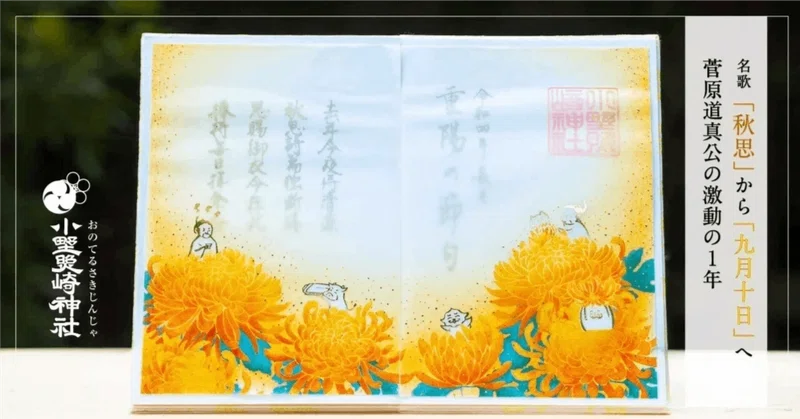 名歌「秋思」から「九月十日」へ
菅原道真公の激動の1年
令和四年長月
重陽の節句
去年今夜侍清涼
秋思詩篇独断腸
恩賜御衣今在此
捧持毎日拝余香
おのてるさきじんじゃ
小埜照崎神社